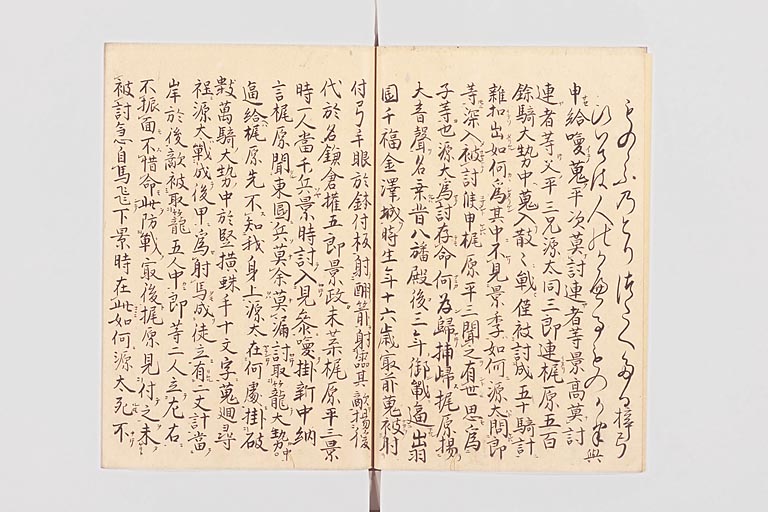 申給喚蒐平次莫討連者等景高莫討
連者等父平三兄源太同三郎連梶原五百
餘騎大势中蒐入散〻戦僅被討成五十騎計
雜扣出如何爲其中不見景季如何源太問郎
等深入被討候申梶原平三聞之有世思爲
子等也源太爲討存命何爲歸捕歸梶原揚
大音聲名乗昔八旛殿後三年御戦逼出羽
國千福金澤城時生年十六歳㝡前蒐被射
付弓手眼於鉢付板射酬箭射落其敵揚後
代於名鎌倉權五郎景政末葉梶原平三景
時一人當千兵景時討入見叅喚掛新中納
言梶原聞東國兵莫余莫漏討取籠大势中
逼給梶原先不知我身上源太在何處掛破
數萬騎大势中於竪橫蛛手十文字蒐廻尋
程源太戦成後甲爲射馬成徒立有二丈計當
岸於後敵被取籠五人中郎等二人立左右
不振面不惜命此防戦㝡後梶原見付之未
被討急自馬飛下景時在此如何源太死不